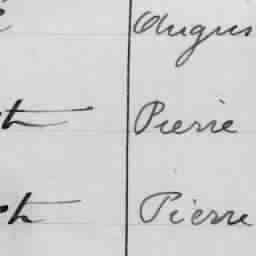 Augus
Pierre
Pierre